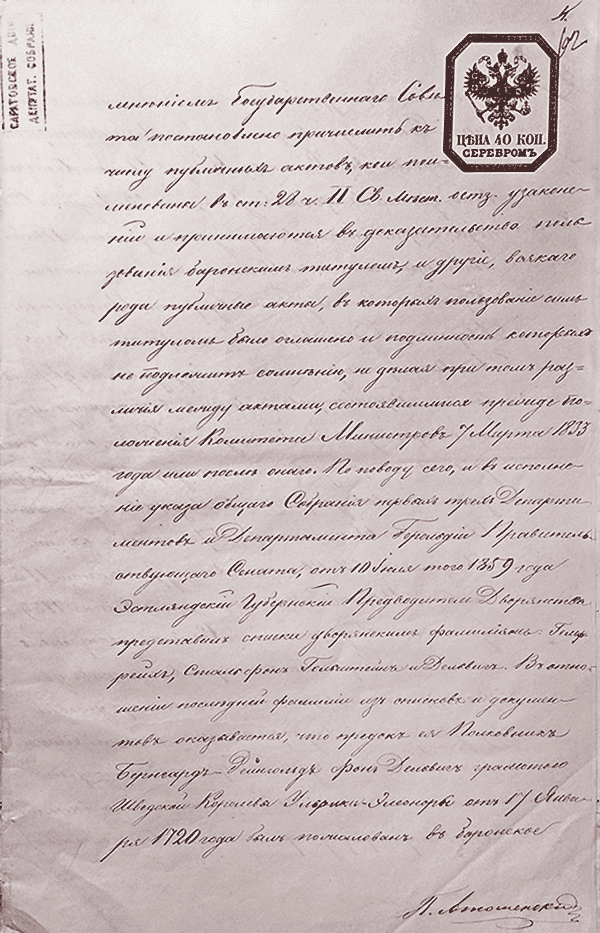 САРАТОВСКОЕ ДВО
ДЕПУТАТ. СОБРАНІ
ЦѢНА 40 КОП.
СЕРЕБРОМЪ
мнѣніемъ Государственнаго Совѣ
та постановлено причислить къ
числу публичныхъ актовъ, кои пои-
менованы въ ст: 28 ч. II Св. мѣст. остз. узаконе-
ній и принимаются въ доказательство поль
зованія баронскимъ титуломъ, и другіе, всякаго
рода публичные акты, въ которыхъ пользованіе симъ
титуломъ было оглашено и подлинность которыхъ
не подлежитъ сомнѣнію, не дѣлая при томъ раз=
личія между актами, состоявшимися прежде По
ложенія Комитета Министровъ 7 Марта 1833
года или послѣ онаго. По поводу сего, и въ исполне
ніе указа общаго Собранія первыхъ трехъ Департа
ментовъ и Департамента Герольдіи Правитель
ствующаго Сената, отъ 10 Іюля того 1859 года
Эстляндскій Губернскій Предводитель Дворянства
представилъ списки дворянскимъ фамиліямъ:
Сталь фонъ Гольштейнъ и Деловигъ. Въ отно-
шеніи послѣдней фамиліи изъ списковъ и докумен
товъ оказывается, что предокъ ея Полковникъ
Бернгардъ-Рейнгольдъ фонъ Деловигъ грамотою
Шведской Королевы Ульрики-Элеоноры отъ 17 Янва-
ря 1720 года былъ пожалованъ въ баронское